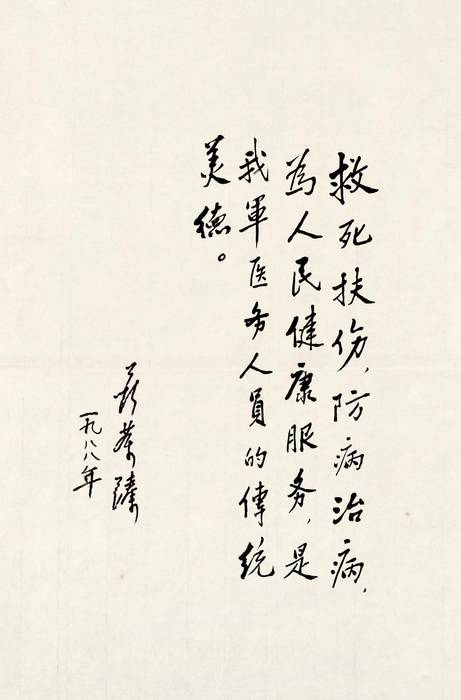 救死扶伤,防病治病,
为人民健康服务,是
我軍医务人員的傳统
美德。
聂荣臻
一九八八年